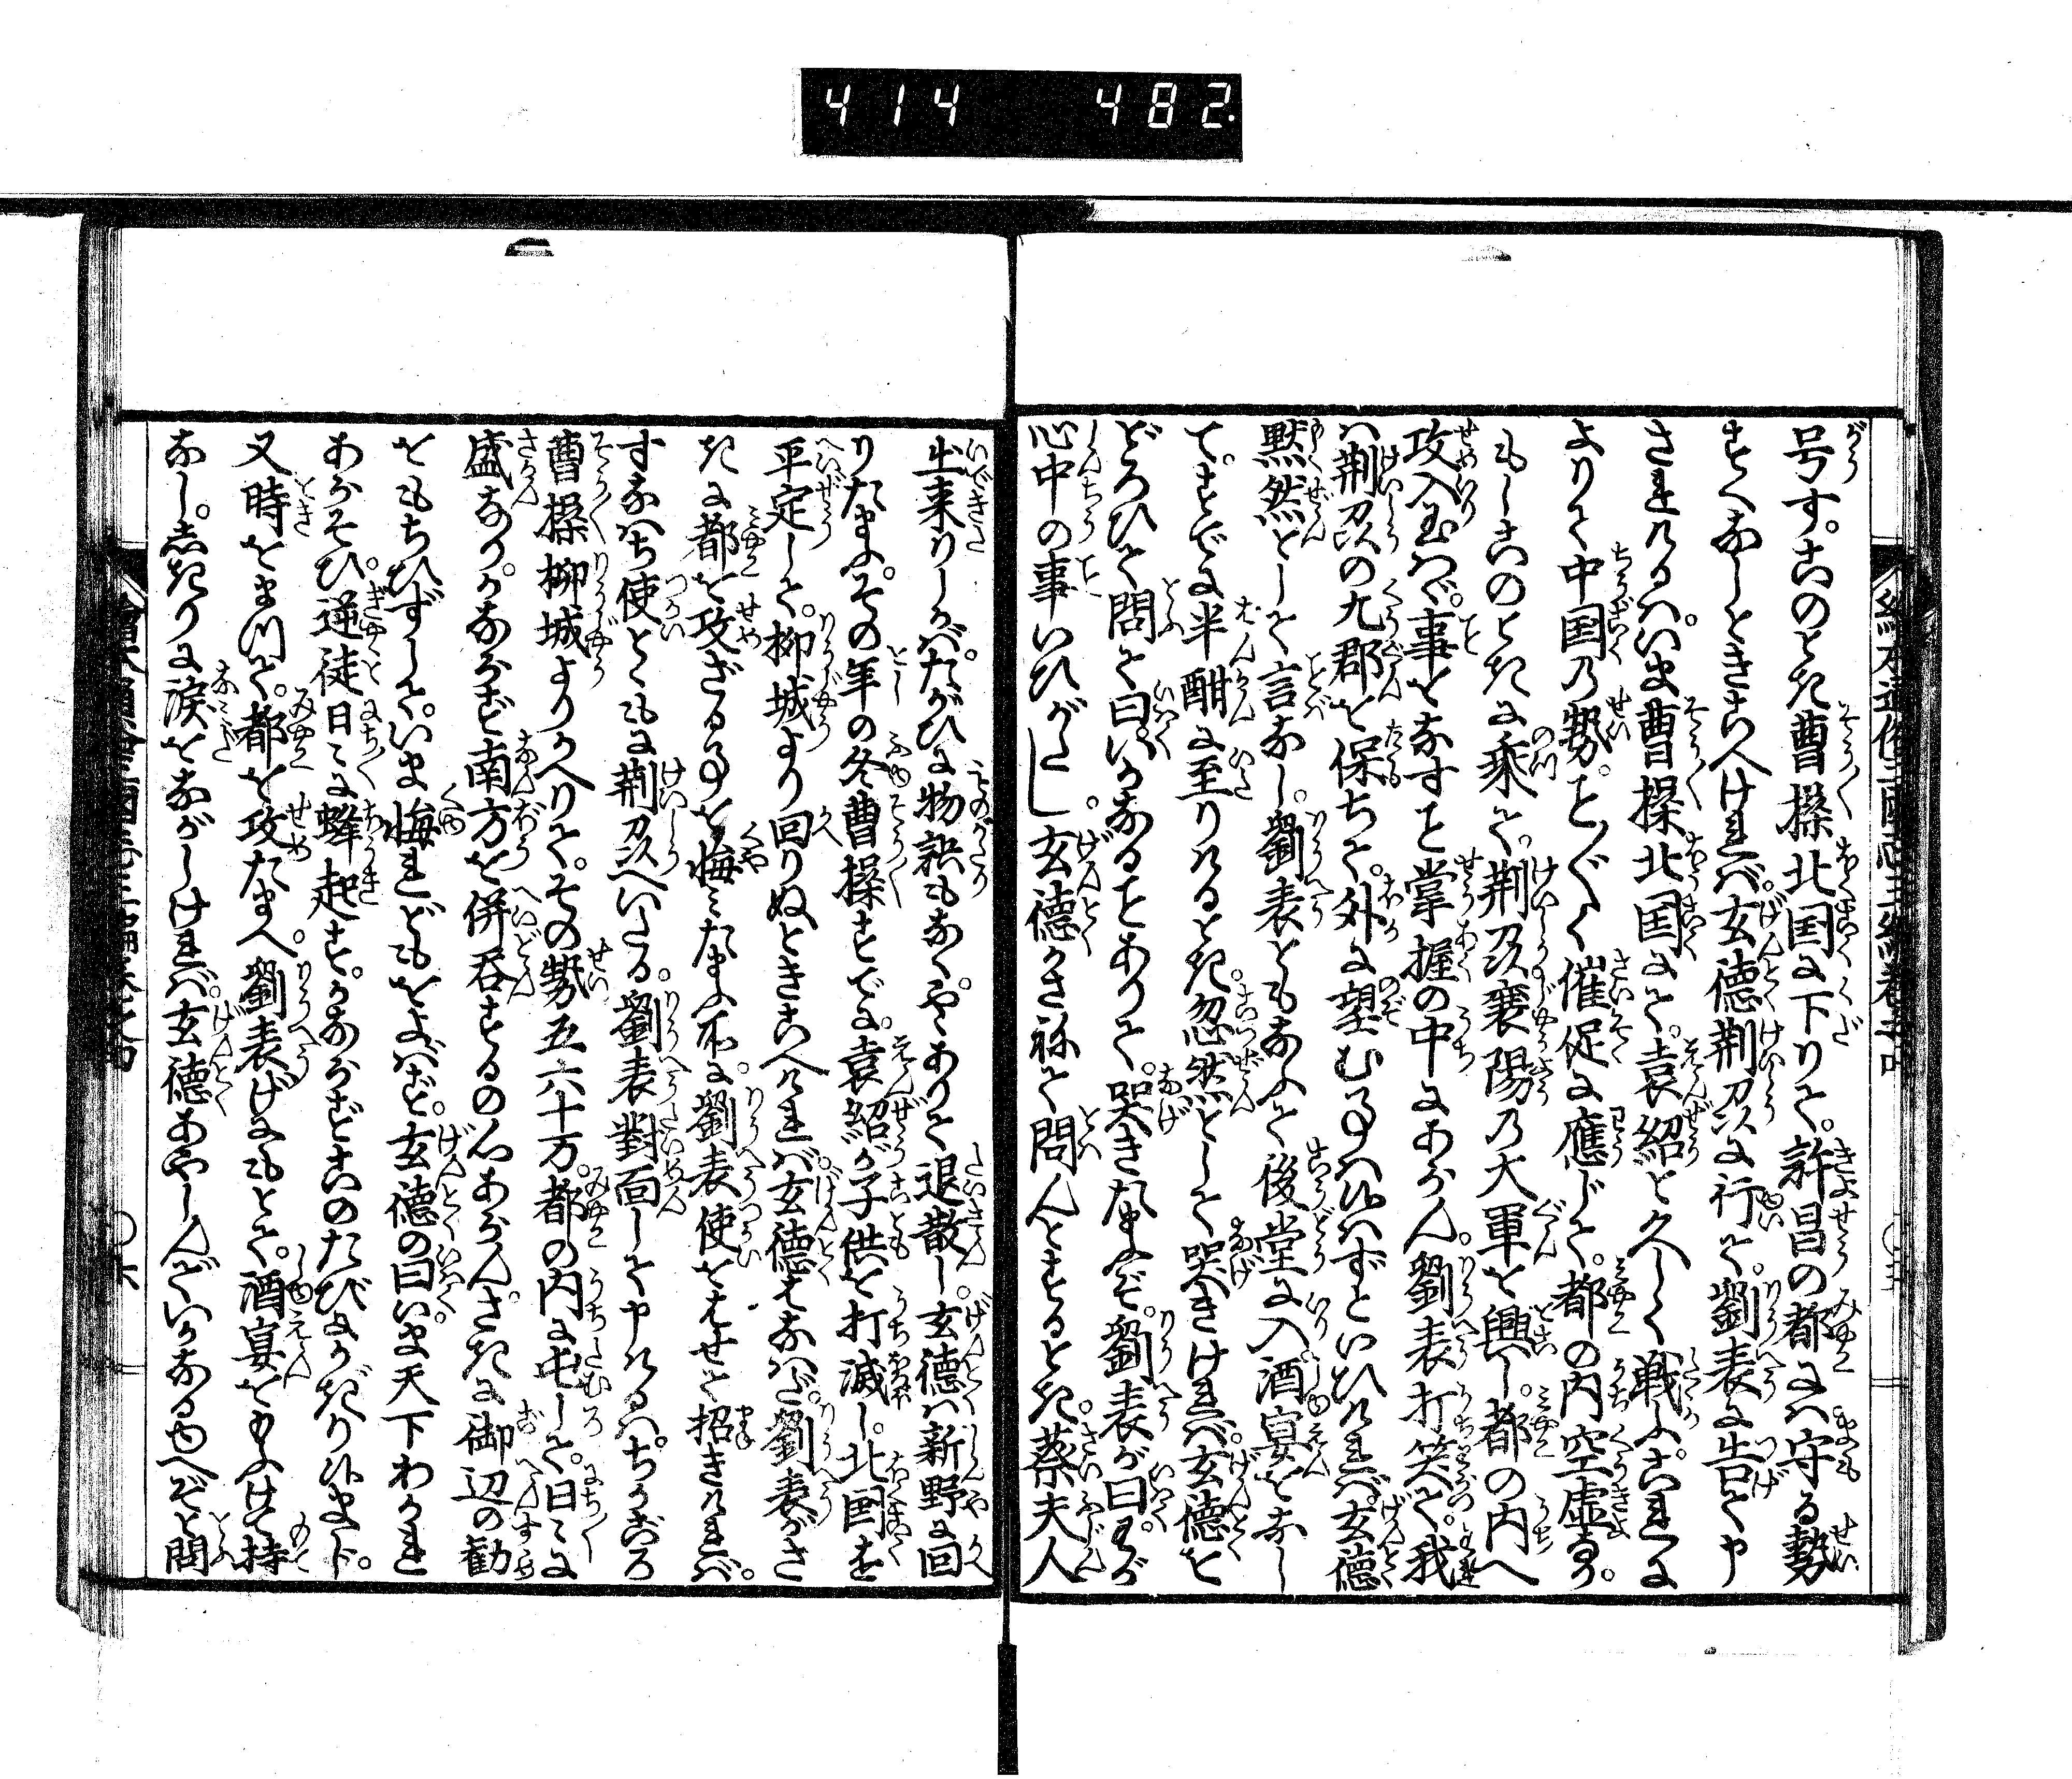 414 482
号す。このとき曹操北国に下りて。許昌の都には守る勢
すくなしときこへければ。玄徳荊州に行て。劉表に告て申
されけるは。いま曹操北国にて。袁紹と久しく戦ふ。これに
よりて中国の勢。こと〴〵く催促に應じて。都の内空虚なり。
もしこのときに乗て。荊州襄陽の大軍を興し。都の内へ
攻入玉はゞ。事をなすこと掌握の中にあらん。劉表打笑て。我
は荊州の九郡を保ちて。外に望む事候はずといひければ。玄徳
黙然として言なし。劉表ともなふて後堂に入。酒宴をなし
て。すでに半酣に至りけるとき。忽然として哭きければ。玄徳を
どろひて問て曰。いかなることありて。哭きたまふぞ。劉表が曰。わが
心中の事いひがたし。玄徳かさねて問んとするとき。蔡夫人
出来りしかば。たがひに物語もなくやゝありて退散し。玄徳は新野に回
りたまふ。その年の冬曹操すでに。袁紹が子供を打滅し。北国を
平定して。柳城より回りぬときこへければ。玄徳はなはだ。劉表がさ
きに都を攻ざる事を悔みたまふ所に。劉表使をはせて招きければ。
すなはち使とともに荊州へいたる。劉表對面して申けるは。ちかごろ
曹操柳城よりかへりて。その勢五六十万。都の内に屯して。日々に
盛なり。かならず南方を併呑するの心あらん。さきに御辺の勧
をもちひずして。いま悔れどもをよばず。玄徳の曰。いま天下わかれ
あらそひ。逆徒日々に蜂起す。かならずこのたびにかぎり候まじ。
又時をまつて。都を攻たまへ。劉表げにもとて。酒宴をまふけて持
なし。しきりに涙をながしければ。玄徳あやしんでいかなるゆへぞと問